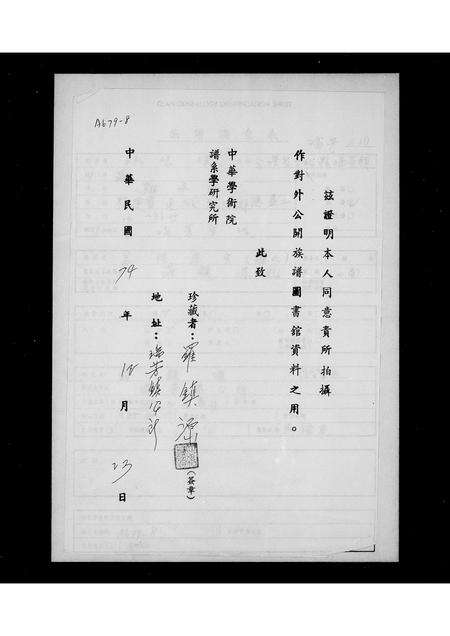 A679-8
茲證明本人同意貴所拍攝
作對外公開族譜圖書館資料之用。
此致
中華學術院
譜系學研究所
珍藏者：羅鎮源（簽章）
地址：瑞芳鎮
中華民國74年12月23日